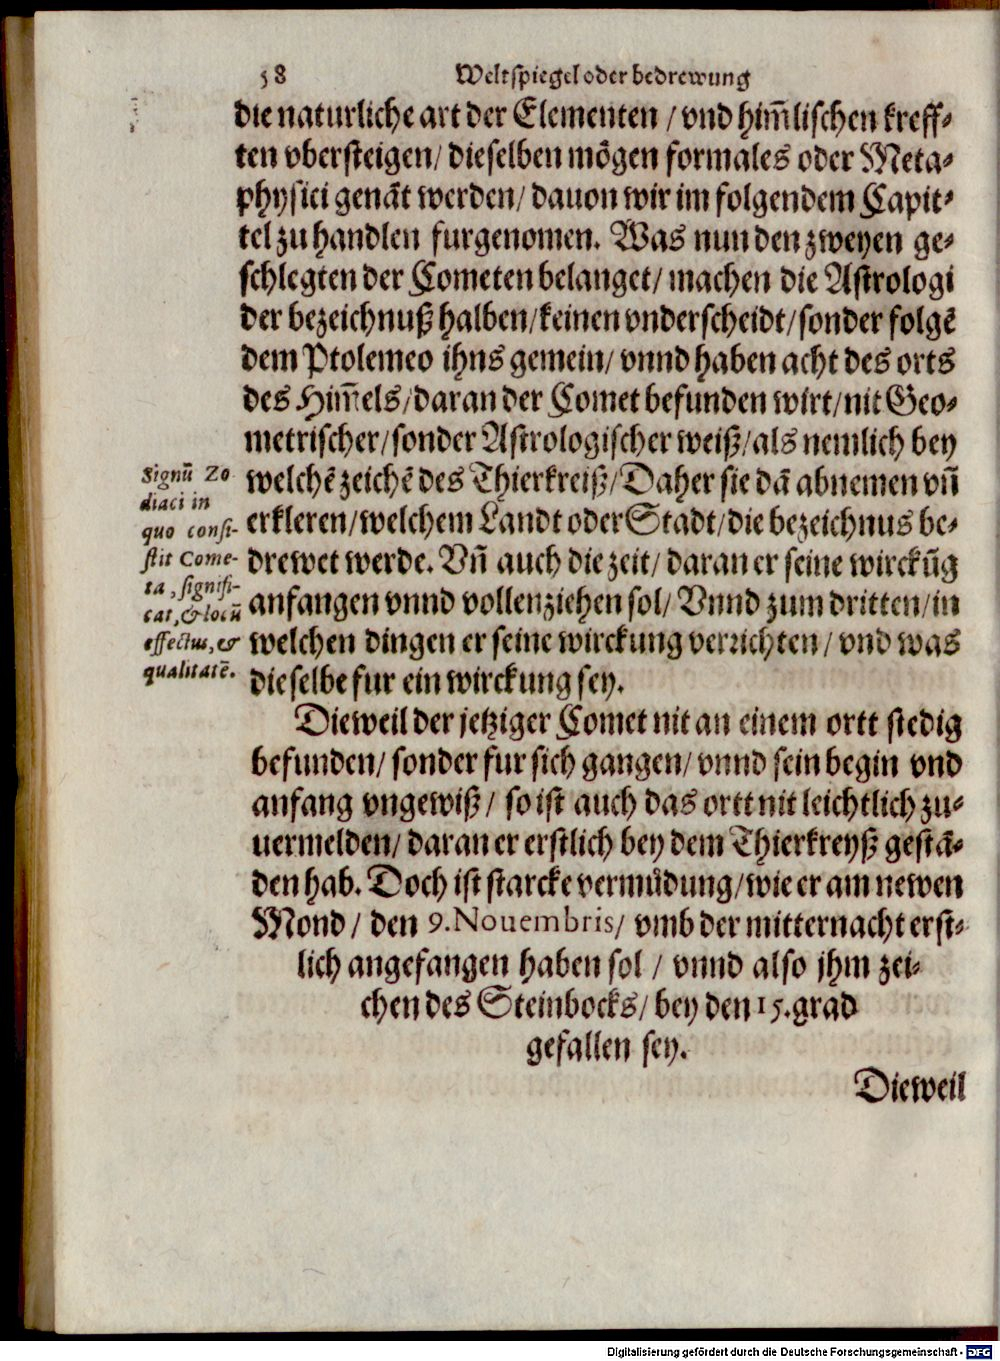 58 Weltspiegel oder bedrewung
die naturliche art der Elementen / vnd him̃lischen kreff-
ten vbersteigen / dieselben mögen formales oder Meta-
physici genãt werden / dauon wir im folgendem Capit-
tel zu handlen furgenomen. Was nun den zweyen ge-
schlegten der Cometen belanget / machen die Astrologi
der bezeichnuß halben / keinen vnderscheidt / sonder folgẽ
dem Ptolemeo ihns gemein / vnnd haben acht des orts
des Him̃els / daran der Comet befunden wirt / nit Geo-
metrischer / sonder Astrologischer weiß / als nemlich bey
welchẽ zeichẽ des Thierkreiß / Daher sie dã abnemen vñ
erkleren / welchem Landt oder Stadt / die bezeichnus be-
drewet werde. Vñ auch die zeit / daran er seine wirckũg
anfangen vnnd vollenziehen sol / Vnnd zum dritten / in
welchen dingen er seine wirckung verrichten / vnd was
dieselbe fur ein wirckung sey.
Signũ Zo
diaci in
quo consi-
stit Come-
ta, signifi-
cat, & locũ
effectus, &
qualitatẽ.
Dieweil der jetziger Comet nit an einem ortt stedig
befunden / sonder fur sich gangen / vnnd sein begin vnd
anfang vngewiß / so ist auch das ortt nit leichtlich zu-
uermelden / daran er erstlich bey dem Thierkreyß gestã-
den hab. Doch ist starcke vermůdung / wie er am newen
Mond / den 9. Nouembris / vmb der mitternacht erst-
lich angefangen haben sol / vnnd also jhm zei-
chen des Steinbocks / bey den 15. grad
gefallen sey.
Dieweil
Digitalisierung gefördert durch die Deutsche Forschungsgemeinschaft - DFG